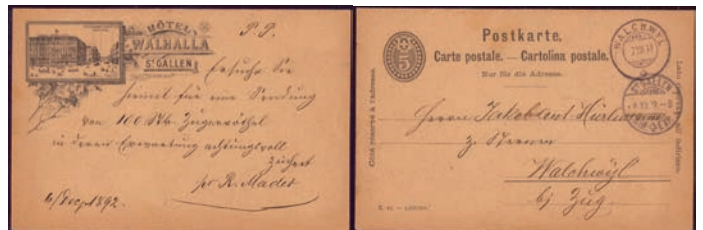 HÔTEL
WALHALLA
ST GALLEN
P.P.
Ersuche Sie
hiemit für eine Sendung
von 100 Stk. Zugerröthel
in deren Erwartung achtungsvoll
zeichnet
pr R. Mader
6/Dec. 1892.
Postkarte.
Carte postale. — Cartolina postale.
Nur für die Adresse.
5
Côté réservé à l'adresse.
Lato riservato all' indirizzo.
WALCHWYL
ST. GALLEN
Herrn Jakob
z. Sternen
Walchwyl
bj Zug